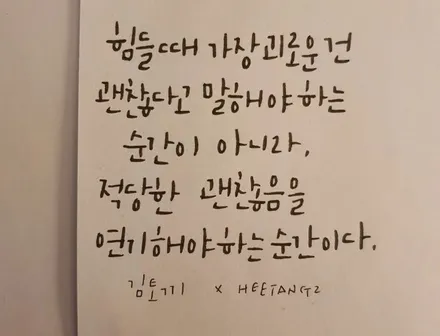 힘들때 가장 괴로운건
괜찮다고 말해야하는
순간이 아니라,
적당한 괜찮음을
연기해야하는 순간이다.
김토끼 x HEETANGZ